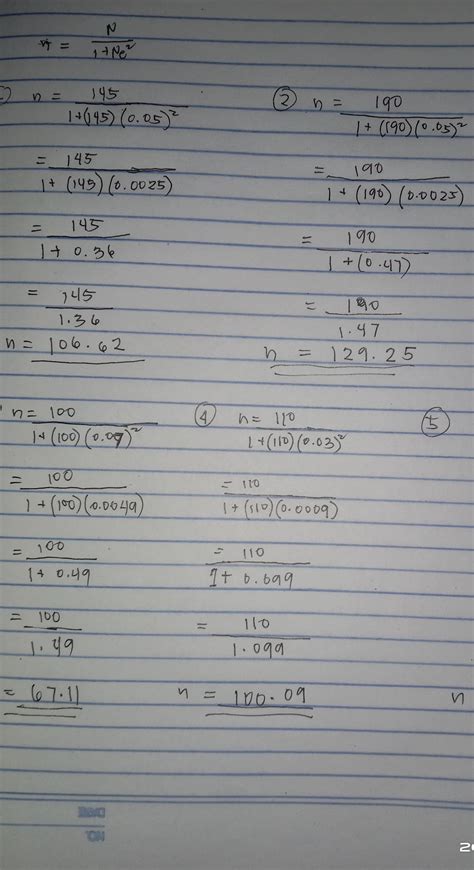 n = N / 1+Ne²
n = 145 / 1+(145)(0.05)²
= 145 / 1+(145)(0.0025)
= 145 / 1+0.36
= 145 / 1.36
n = 106.62
② n = 190 / 1+(190)(0.05)²
= 190 / 1+(190)(0.0025)
= 190 / 1+(0.47)
= 190 / 1.47
n = 129.25
n = 100 / 1+(100)(0.07)²
= 100 / 1+(100)(0.0049)
= 100 / 1+0.49
= 100 / 1.49
= 67.11
④ n = 110 / 1+(110)(0.03)²
= 110 / 1+(110)(0.0009)
= 110 / 1+0.099
= 110 / 1.099
n = 100.09
⑤
n
DATE
NO.